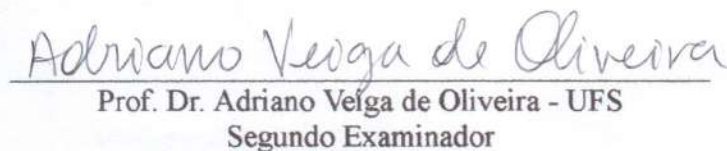 Adriano Veiga de Oliveira
Prof. Dr. Adriano Veiga de Oliveira - UFS
Segundo Examinador